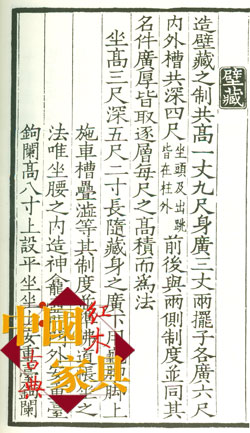 壁藏
造壁藏之制共高一丈九尺身廣三丈兩擺子各廣六尺
内外槽共深四尺坐頭及出跳皆在柱外前後與兩側制度並同其
名件廣厚皆取逐層每尺之高積而為法
坐高三尺深五尺二寸長隨藏身之廣下用脚上
施車槽疊澀等其制度道坐之
法唯坐腰之内造神龕門外臺
鉤闌高八寸上設平坐坐安重臺鉤闌
中國
紅木
古典
家具